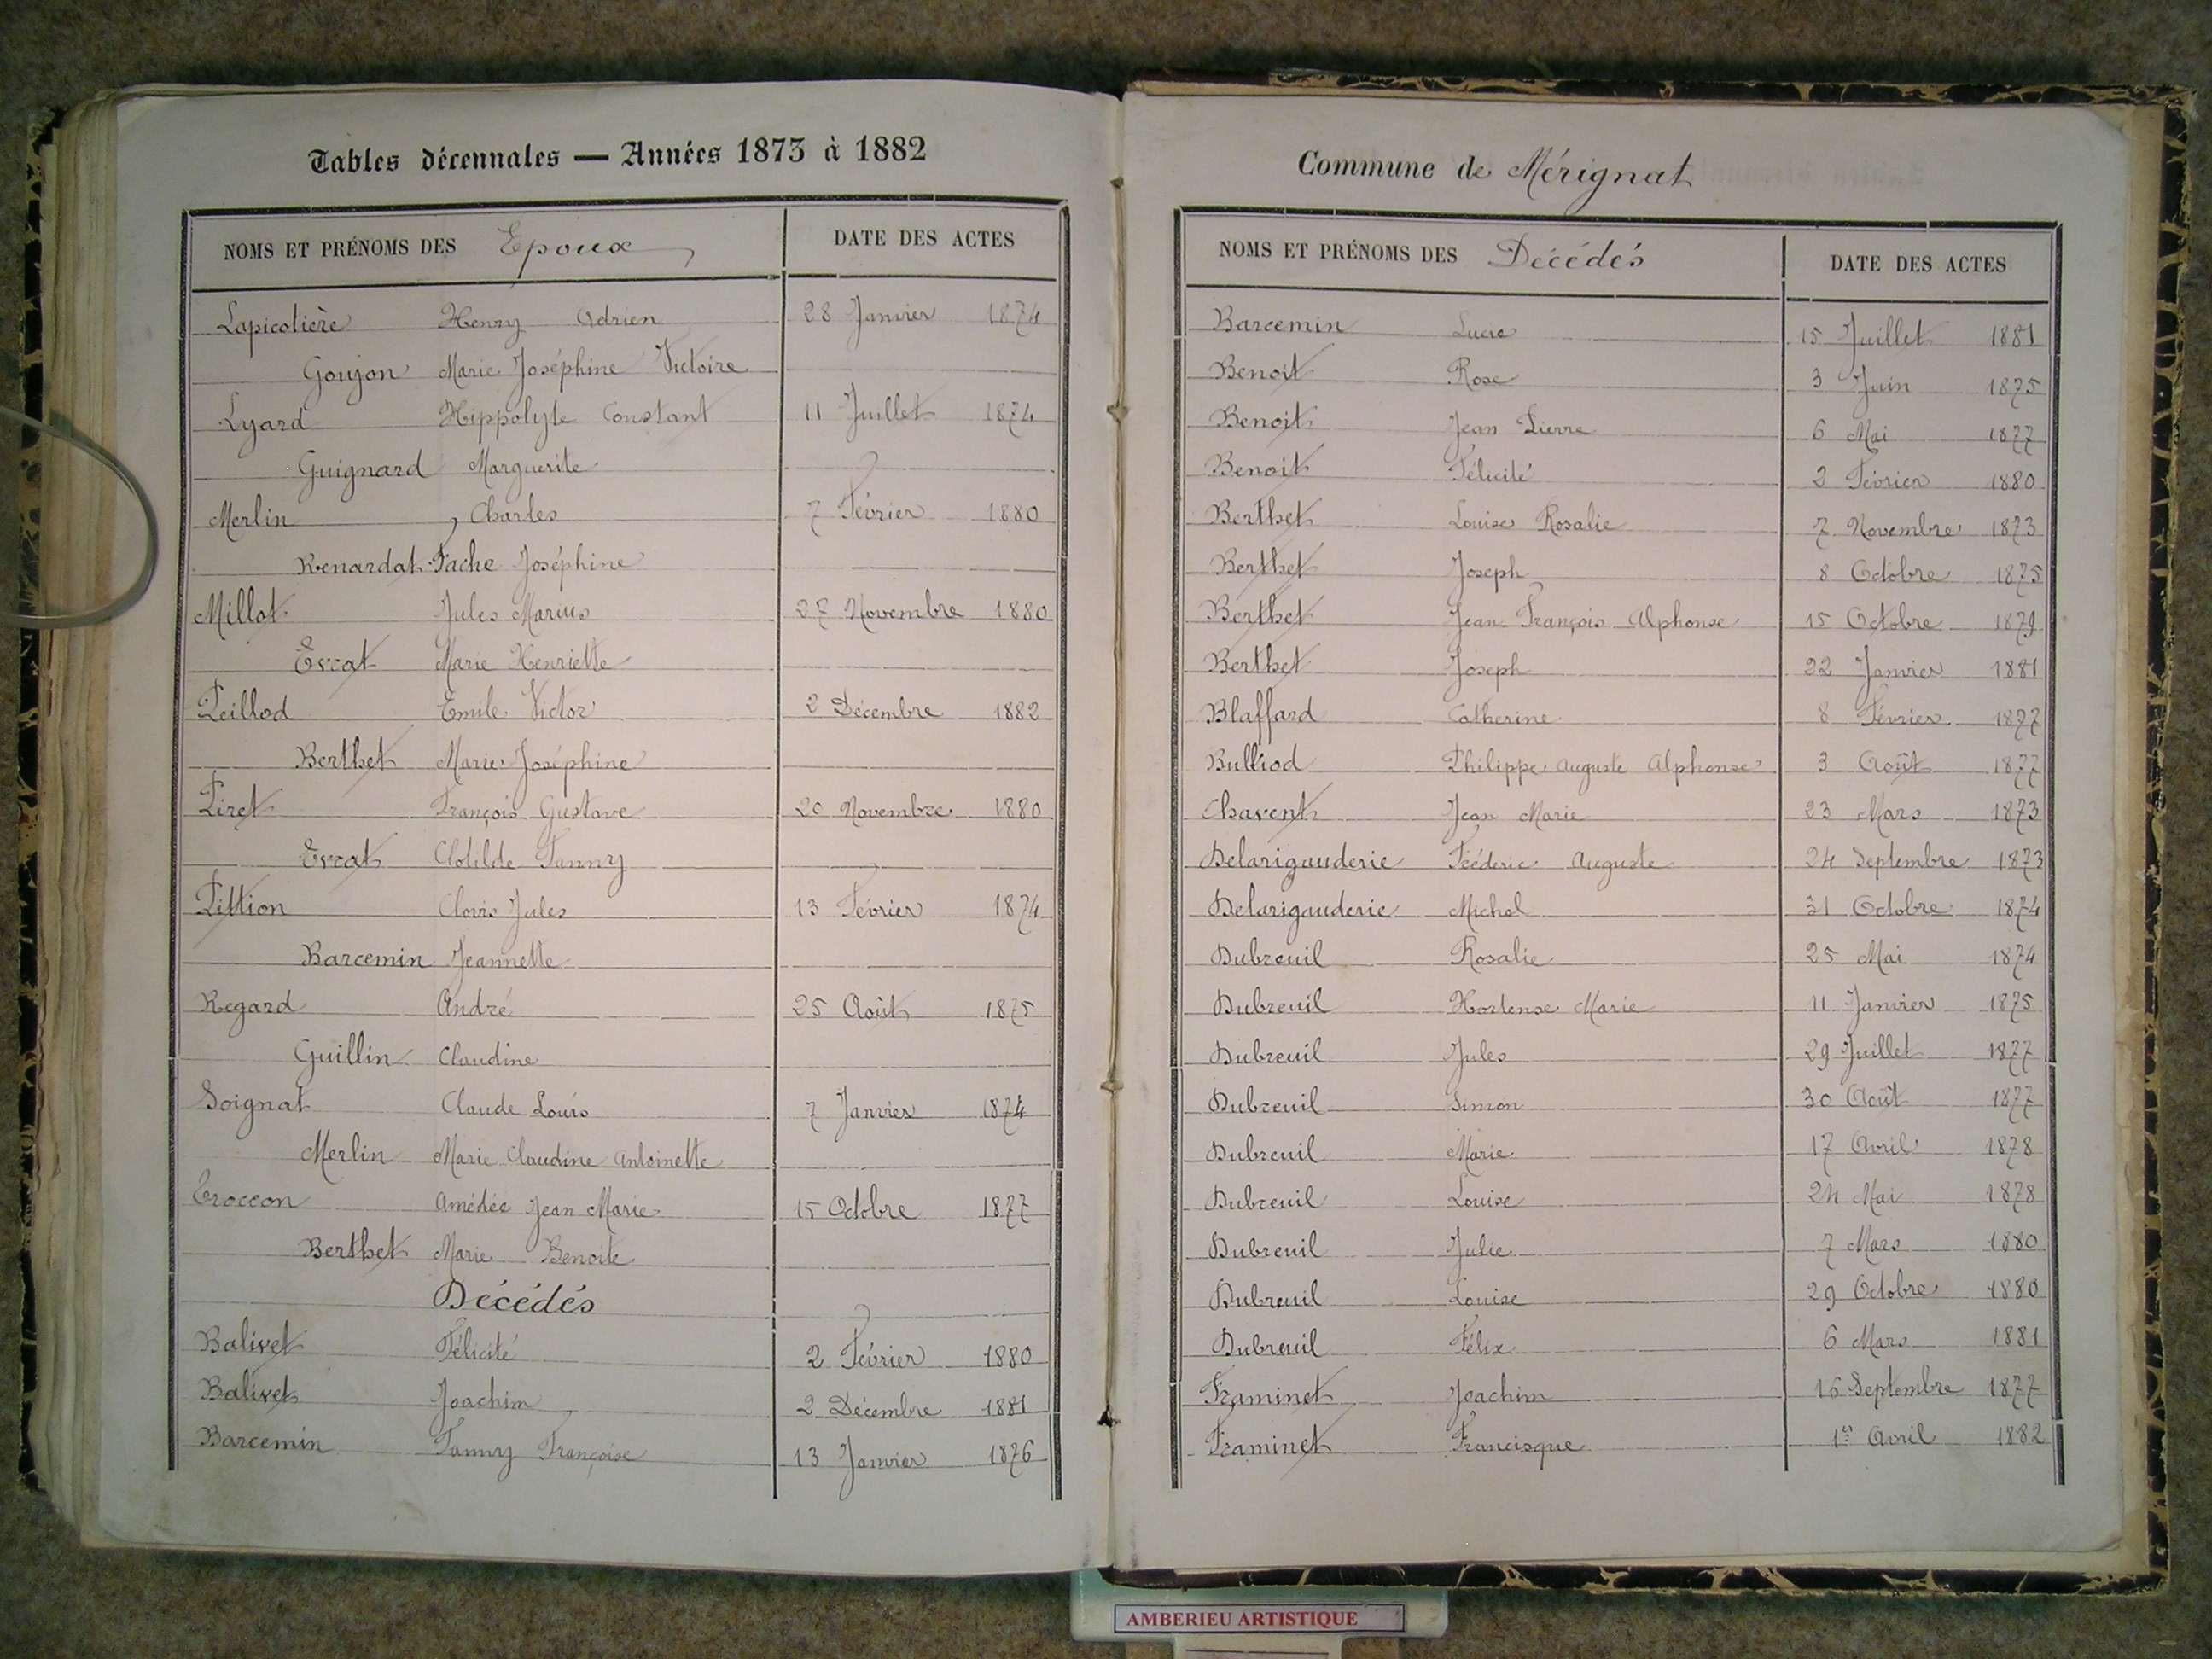 Tables décennales — Années 1873 à 1882
NOMS ET PRÉNOMS DES Epoux DATE DES ACTES
Lapicotière Henry Adrien 28 Janvier 1874
Goujon Marie Joséphine Victoire
Lyard Hippolyte Constant 11 Juillet 1874
Guignard Marguerite
Merlin, Charles 7 Février 1880
Renardat Fache Joséphine
Millot Jules Marius 27 Novembre 1880
Evrat Marie Henriette
Peillod Emile Victor 2 Décembre 1882
Berthet Marie Joséphine
Piret François Gustave 20 Novembre 1880
Evrat Clotilde Fanny
Pittion Clovis Jules 13 Février 1874
Barcemin Jeannette
Regard André 25 Août 1875
Guillin Claudine
Soignat Claude Louis 7 Janvier 1874
Merlin Marie Claudine Antoinette
Troccon Amédée Jean Marie 15 Octobre 1877
Berthet Marie Benoite
Décédés
Balivet Félicité 2 Février 1880
Balivet Joachim 2 Décembre 1881
Barcemin Fanny Françoise 13 Janvier 1876
Commune de Mérignat
NOMS ET PRÉNOMS DES Décédés DATE DES ACTES
Barcemin Lucie 15 Juillet 1881
Benoit Rose 3 Juin 1875
Benoit Jean Pierre 6 Mai 1877
Benoit Félicité 2 Février 1880
Berthet Louise Rosalie 7 Novembre 1873
Berthet Joseph 8 Octobre 1875
Berthet Jean François Alphonse 15 Octobre 1879
Berthet Joseph 22 Janvier 1881
Blaffard Catherine 8 Février 1877
Bulliod Philippe Auguste Alphonse 3 Août 1877
Chavent Jean Marie 23 Mars 1873
Delarigauderie Fréderic Auguste 24 Septembre 1873
Delarigauderie Michel 31 Octobre 1874
Dubreuil Rosalie 25 Mai 1874
Dubreuil Hortense Marie 11 Janvier 1875
Dubreuil Jules 29 Juillet 1877
Dubreuil Simon 30 Août 1877
Dubreuil Marie 17 Avril 1878
Dubreuil Louise 24 Mai 1878
Dubreuil Julie 7 Mars 1880
Dubreuil Louise 29 Octobre 1880
Dubreuil Félix 6 Mars 1881
Framinet Joachim 16 Septembre 1877
Framinet Francisque 1er Avril 1882
AMBERIEU ARTISTIQUE